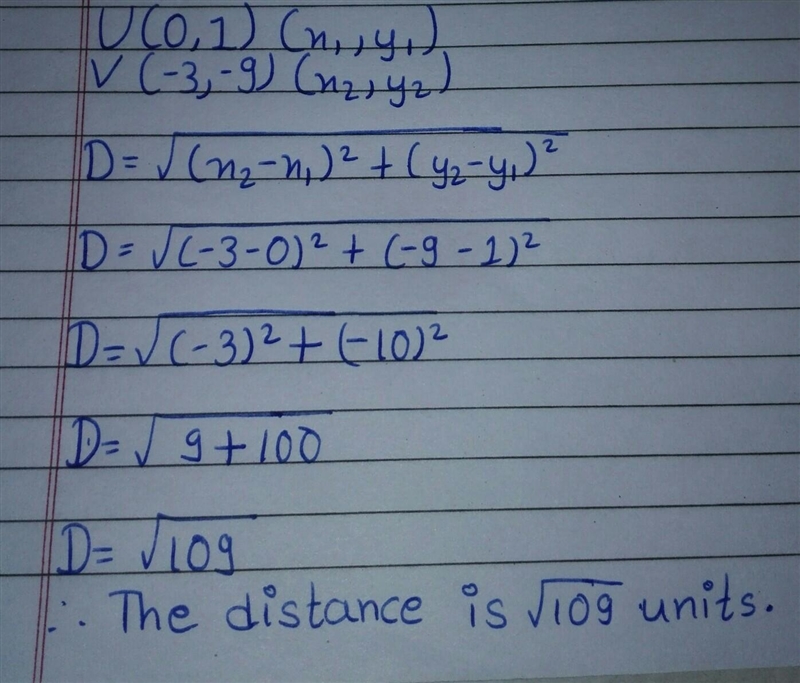 U(0,1) (x₁,y₁)
V (-3,-9) (x₂,y₂)
D=√(x₂-x₁)² + (y₂-y₁)²
D=√(-3-0)² + (-9-1)²
D=√(-3)² + (-10)²
D=√9+100
D=√109
∴ The distance is √109 units.